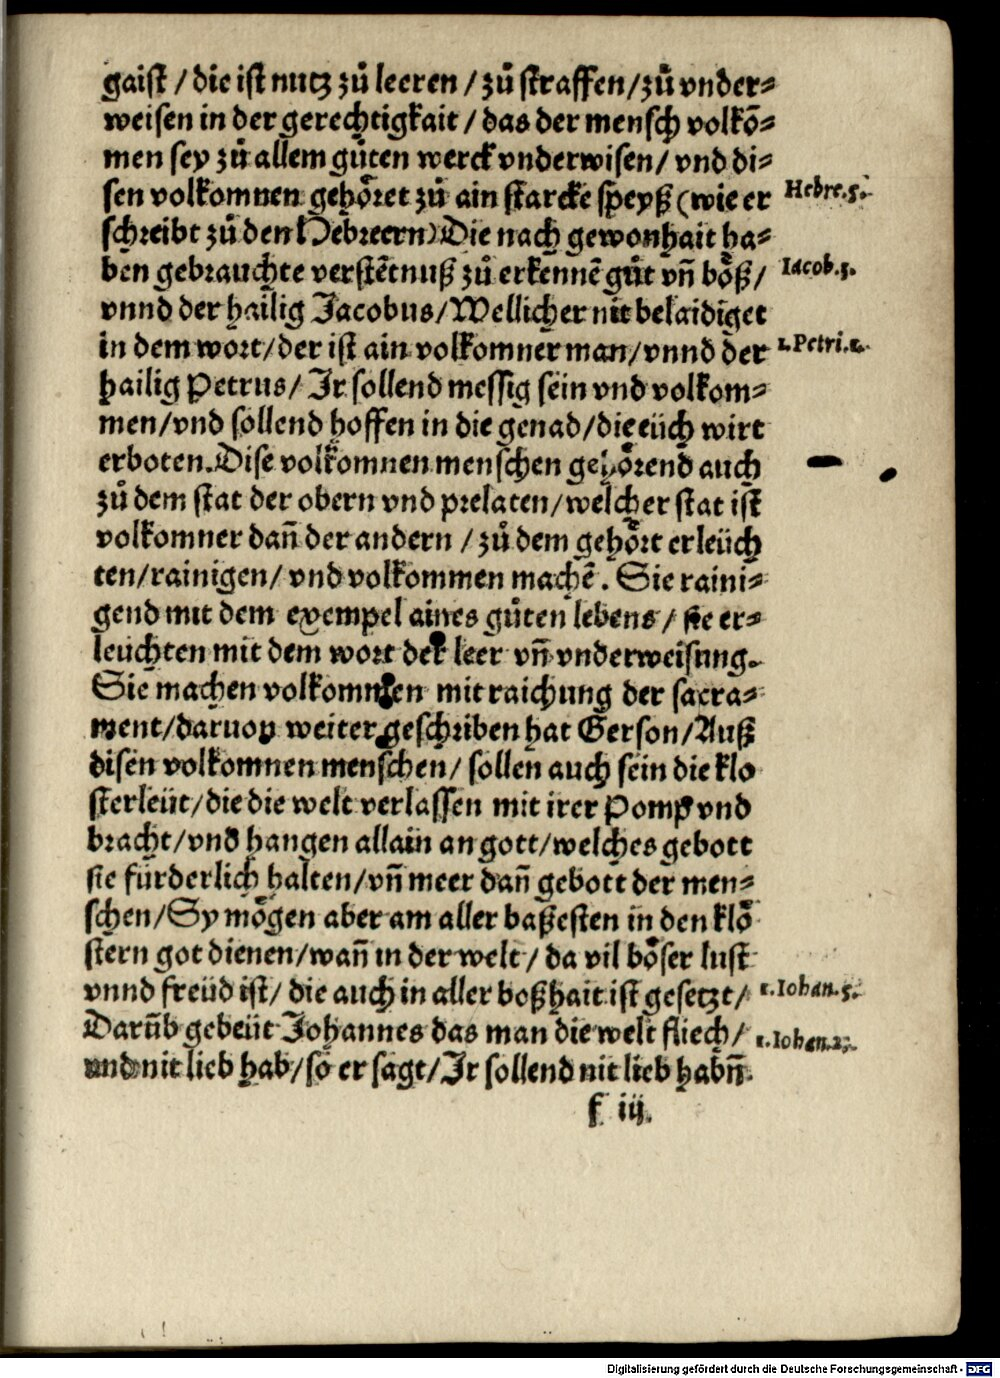 gaist / die ist nutz zů leeren / zů straffen/zů vnder⸗
weisen in der gerechtigkait / das der mensch volkō⸗
men sey zů allem gůten werck vnderwisen/ vnd di⸗
sen volkomnen gehöret zů ain starcke speyß (wie er
Hebre.5.
schreibt zů den Hebreern) Die nach gewonhait ha⸗
ben gebrauchte verstētnuß zů erkennē gůt vñ böß/
Iacob.3.
vnnd der hailig Jacobus/Wellicher nit belaidiget
in dem wort/der ist ain volkomner man/vnnd der
1.Petri.1.
hailig Petrus/ Ir sollend messig sein vnd volkom⸗
men/vnd sollend hoffen in die genad/die eüch wirt
erboten. Dise volkomnen menschen gehörend auch
zů dem stat der obern vnd prelaten/welcher stat ist
volkomner dañ der andern / zů dem gehört erleüch
ten/rainigen/ vnd volkommen machē. Sie raini⸗
gend mit dem exempel aines gůten lebens/ sie er⸗
leuchten mit dem wort der leer vñ vnderweisung.
Sie machen volkomnen mit raichung der sacra⸗
ment/daruon weiter geschriben hat Gerson/Auß
disen volkomnen menschen/ sollen auch sein die klo
sterleüt/die die welt verlassen mit irer Pomp vnd
bracht/vnd hangen allain an gott/welches gebott
sie fürderlich halten/vñ meer dañ gebott der men⸗
schen/Sy mögen aber am aller baßesten in den klö
stern got dienen/wañ in der welt/ da vil böser lust
vnnd freüd ist/ die auch in aller boßhait ist gesetzt/
1.Iohan.5.
Darūb gebeüt Johannes das man die welt fliech/
1.Iohan.2.
vnd nit lieb hab/so er sagt/Ir sollend nit lieb habñ
f iij.
Digitalisierung gefördert durch die Deutsche Forschungsgemeinschaft - DFG